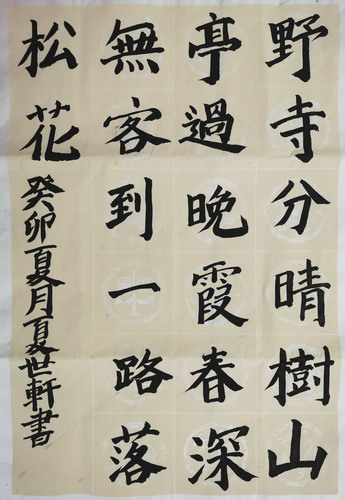 野寺分晴樹山
亭過晚霞春深
無客到一路落
松花
癸卯夏月夏世軒書